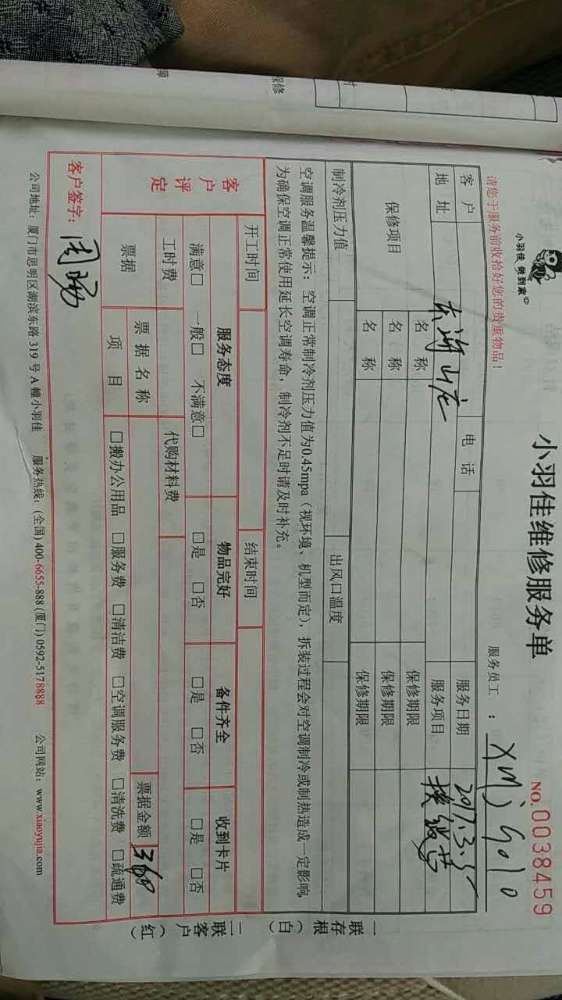 障
保修
小羽佳 做到家
小羽佳维修服务单
NO.0038459
请您于服务前收拾好您的贵重物品!
服务员工:XMJ6010
客户
电话
服务日期
2017.3.5
地址
东渡山庄
服务项目
保修项目
名称
保修期限
名称
保修期限
名称
保修期限
制冷剂压力值
出风口温度
空调服务温馨提示:空调正常制冷剂压力值为0.45mpa(视环境、机型而定),拆装过程会对空调制冷或制热造成一定影响,
为确保空调正常使用延长空调寿命,制冷剂不足时请及时补充。
开工时间
结束时间
客户评定
服务态度
物品完好
备件齐全
收到卡片
满意□ 一般□ 不满意□
□是 □否
□是 □否
□是 □否
工时费
代购材料费
票据
票据名称
票据金额
360
项目
□搬办公用品 □服务费 □清洁费 □空调服务费 □清洗费 □疏通费
客户签字:
公司地址:厦门市思明区湖滨东路319号A幢小羽佳 服务热线:(全国)400-6655-888 (厦门)0592-5178888 公司网站:www.xiaoyujia.com
一联存根(白)
二联客户(红)